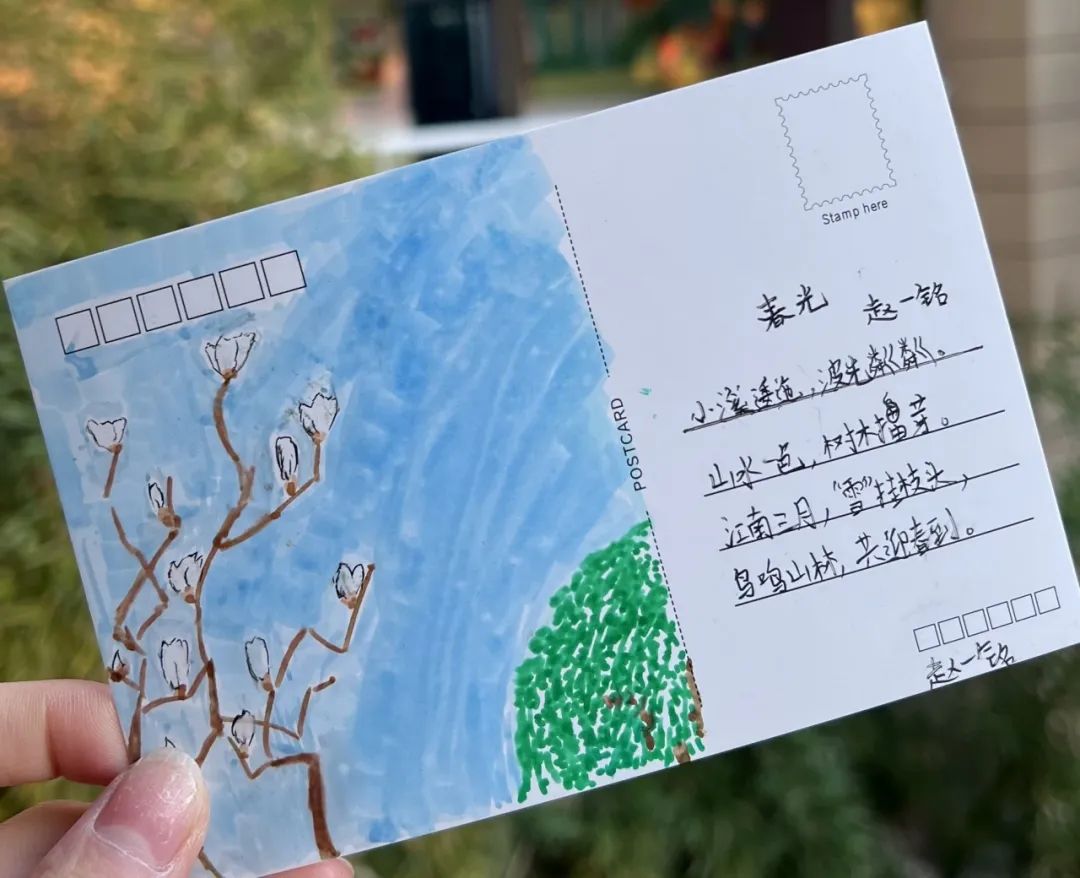 Stamp here
POSTCARD
春光 赵一铭
小溪透迤,波光粼粼。
山水一色,树木擢芽。
江南三月,“雪”挂枝头,
鸟鸣山林,共迎春到。
赵一铭